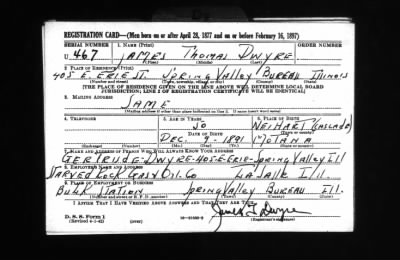 REGISTRATION CARD—(Men born on or after April 28, 1877 and on or before February 16, 1897)
SERIAL NUMBER 1. NAME (Print) ORDER NUMBER
U 467 JAMES THOMAS DWYRE
(First) (Middle) (Last)
2. PLACE OF RESIDENCE (Print)
405 E. ERIE ST. SPRING VALLEY BUREAU ILLINOIS
(Number and street) (Town, township, village, or city) (County) (State)
[THE PLACE OF RESIDENCE GIVEN ON THE LINE ABOVE WILL DETERMINE LOCAL BOARD
JURISDICTION; LINE 2 OF REGISTRATION CERTIFICATE WILL BE IDENTICAL]
3. MAILING ADDRESS
SAME
[Mailing address if other than place indicated on line 2. If same insert word same]
4. TELEPHONE 5. AGE IN YEARS 6. PLACE OF BIRTH
50 NEIHART (CASCADE)
DATE OF BIRTH (Town or county)
DEC. 9. 1891 MOTANA
(Exchange) (Number) (Mo.) (Day) (Yr.) (State or country)
7. NAME AND ADDRESS OF PERSON WHO WILL ALWAYS KNOW YOUR ADDRESS
GERTRUDE-DWYRE-405-E-ERIE-SPRING VALLEY Ill
8. EMPLOYER'S NAME AND ADDRESS
STARVED ROCK GAS & OIL CO LA SALLE Ill.
9. PLACE OF EMPLOYMENT OR BUSINESS
BULK STATION SPRING VALLEY BUREAU Ill.
(Number and street or R. F. D. number) (Town) (County) (State)
I AFFIRM THAT I HAVE VERIFIED ABOVE ANSWERS AND THAT THEY ARE TRUE.
D. S. S. Form 1
(Revised 4-1-42) (over) James T. Dwyre
(Registrant's signature)